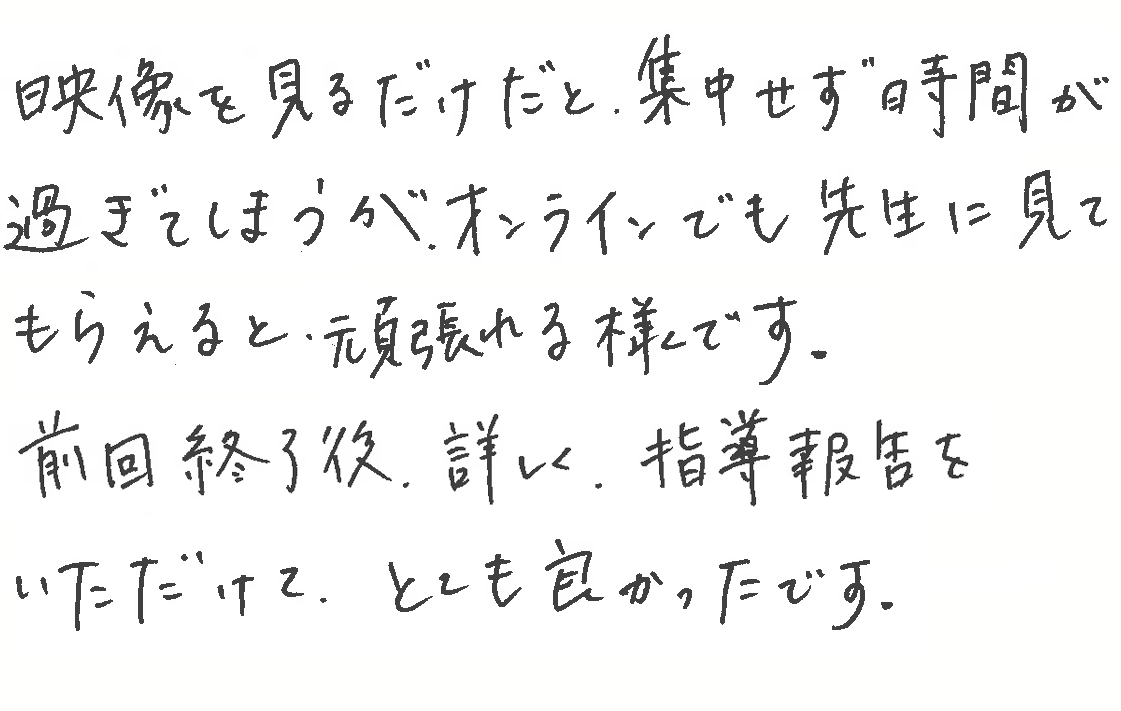 映像を見るだけだと、集中せず時間が
過ぎてしまうが、オンラインでも先生に見て
もらえると、頑張れる様です。
前回終了後、詳しく、指導報告を
いただけて、とても良かったです。